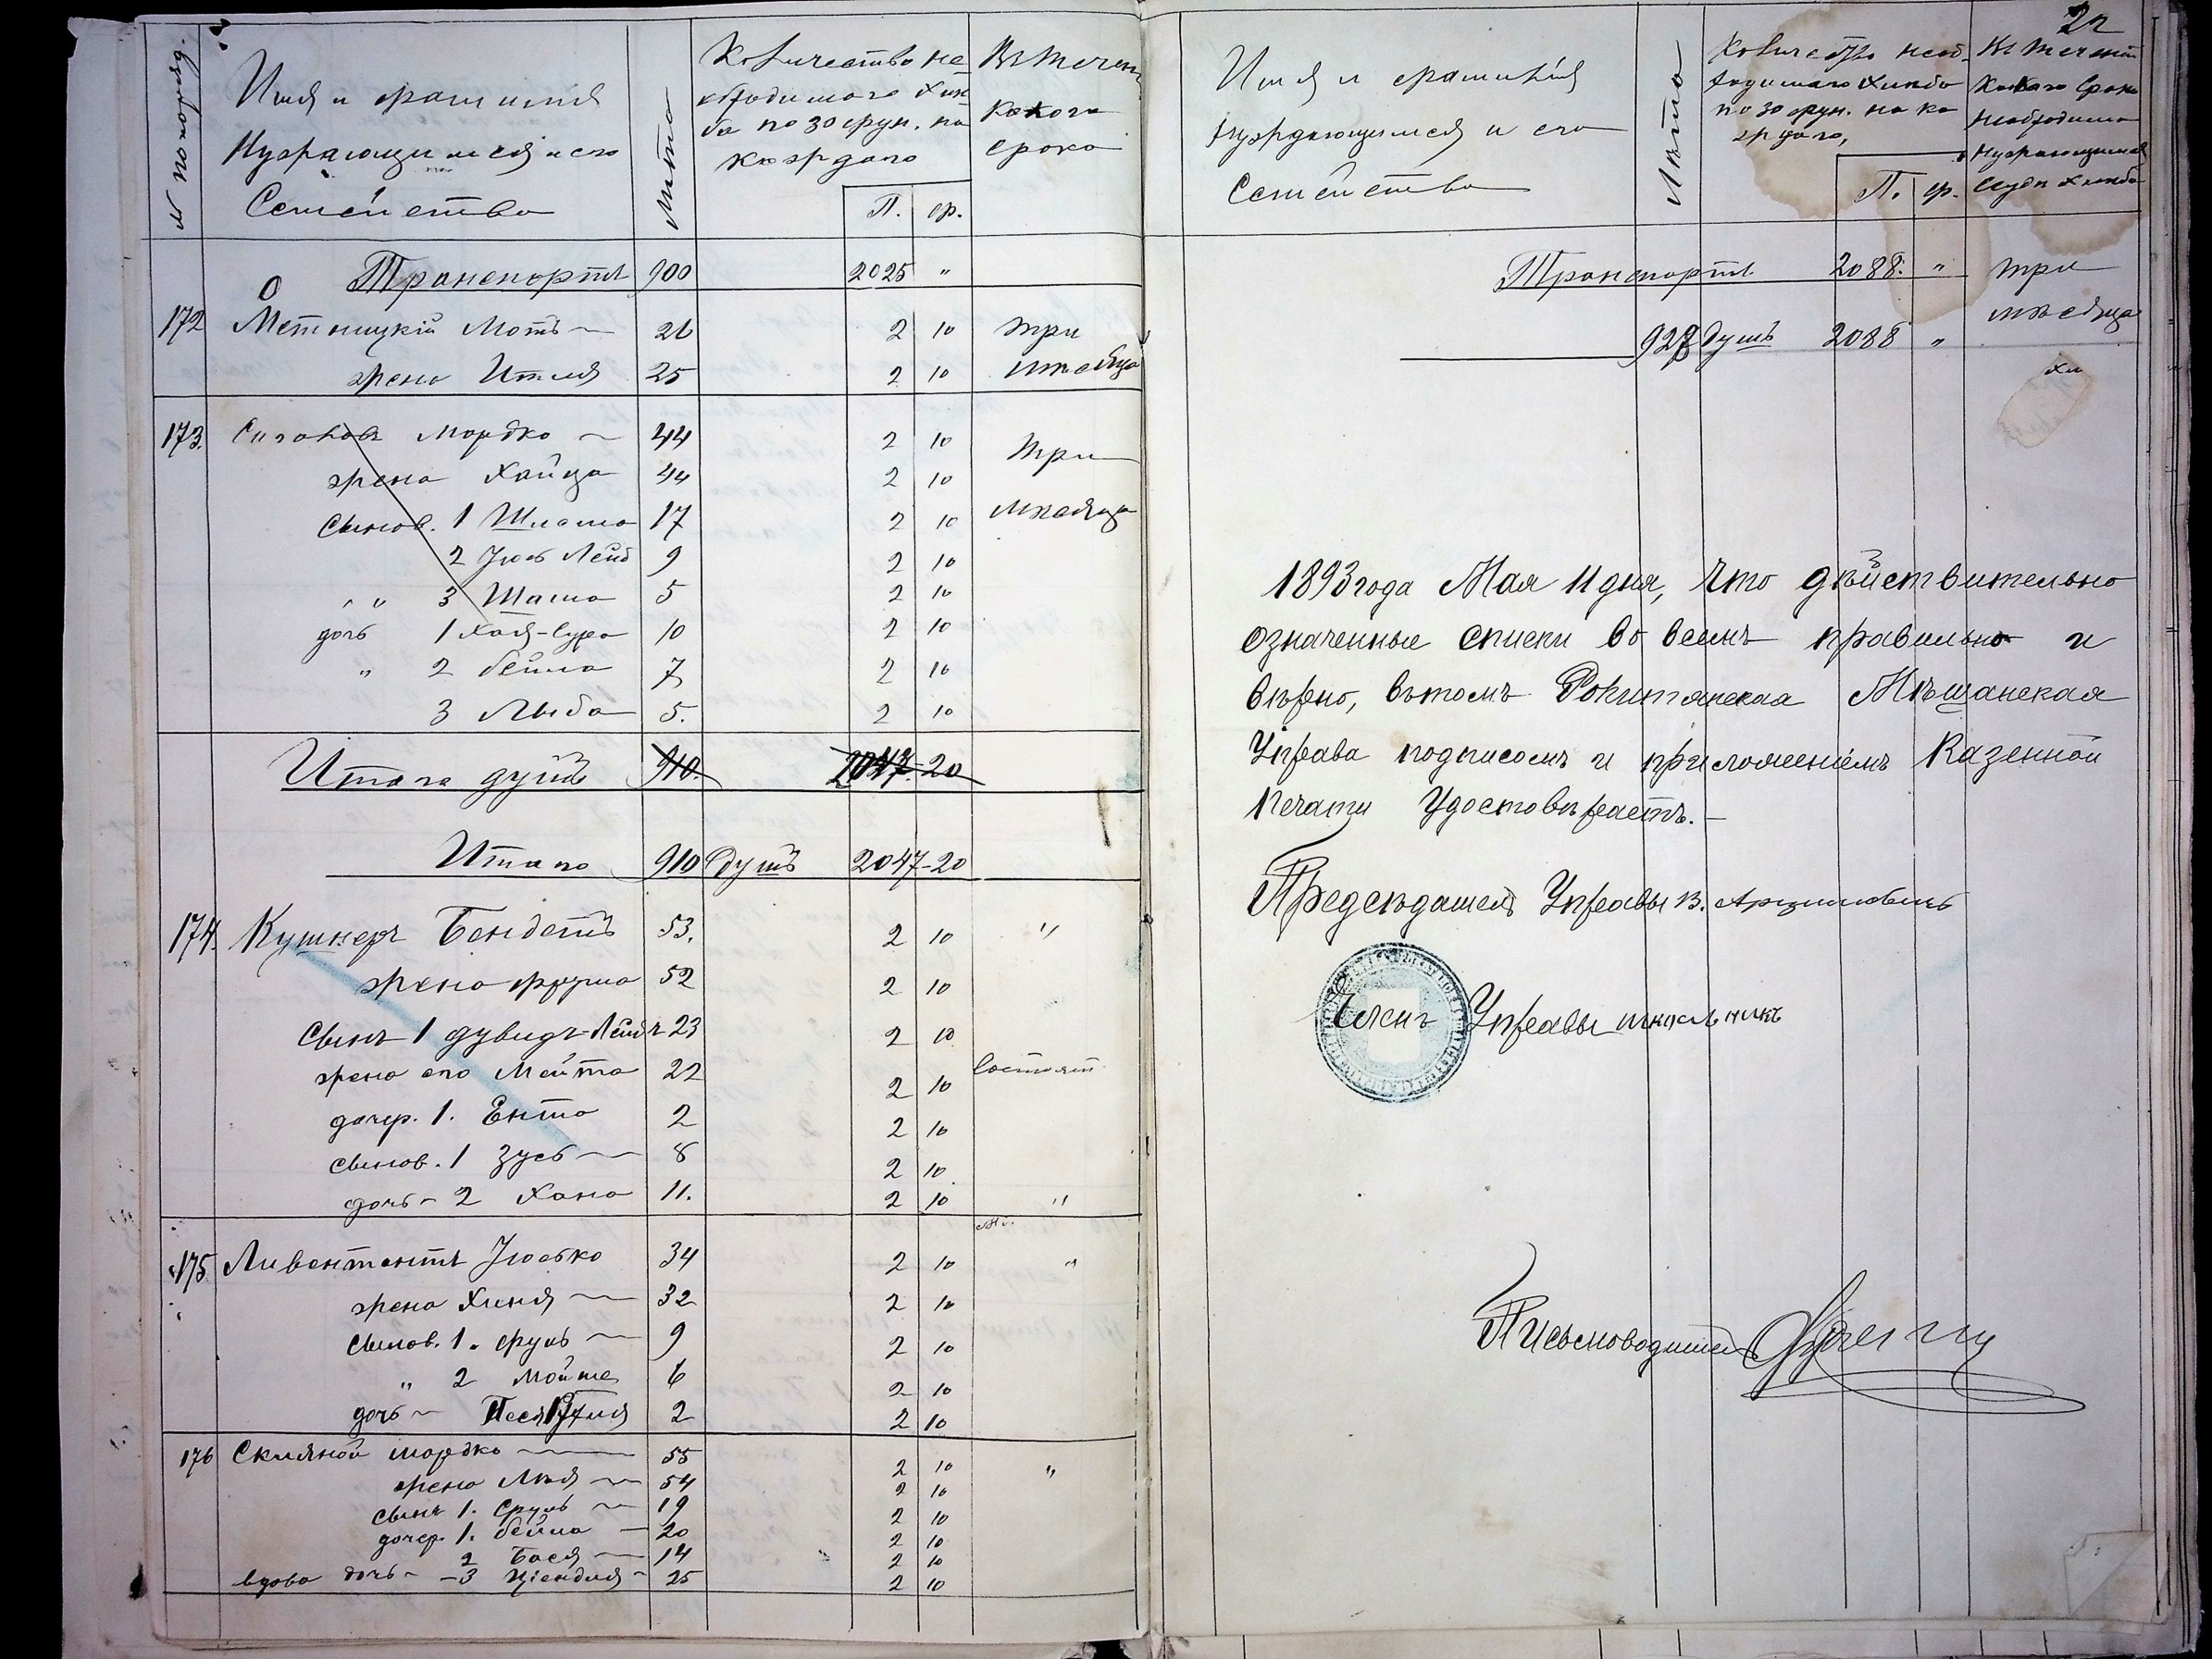 № по порядку
Имя и фамилия
Нуждающимся и его
Семейства
Лѣта
Количество не
обходимаго хлѣ
ба по 30 фун. на
каждаго
П. ф.
Въ течен
какого
срока
Транспортъ 900 2025 "
172 Мотъ 26 2 10 три
жена Итля 25 2 10 мѣсяца
173. Мордко 44 2 10 три
жена Хайца 44 2 10
сынов. 1 Шлема 17 2 10 мѣсяца
2 Лейб 9 2 10
" " 3 Шама 5 2 10
дочь 1 Хая-Сура 10 2 10
" 2 бейла 7 2 10
3 Лыба 5. 2 10
Итого душъ 910. 2047-20
Итого 910 душъ 2047-20
174. Кушнеръ Бендетъ 53. 2 10 "
жена фрума 52 2 10
Сынъ 1 дувидъ-Лейбъ 23 2 10
жена его Мейта 22 2 10 состоят
дочер. 1. Ента 2 2 10
сынов. 1 Зусь 8 2 10
дочь - 2 Хана 11. 2 10 "
175 Ливентантъ Іосько 34 2 10 "
жена Хиня 32 2 10
сынов. 1. сруль 9 2 10
" 2 мойше 6 2 10
дочь Песя 2 2 10
176 Скляной мордко 55 2 10 "
жена Лея 54 2 10
сынъ 1. Сруль 19 2 10
дочер. 1. бейла 20 2 10
2 Бася 14 2 10
вдова дочь - 3 25 2 10
Имя и фамилія
нуждающимся и его
Семейства
Лѣта
Количество необ-
ходимаго хлѣба
по 30 фун. на ка
ждаго,
П. ф.
Въ течени
какаго срока
необходима
нуждающимся
ссуда хлѣба
Транспортъ 2088. " три
мѣсяца
928 душъ 2088 "
1893 года Мая 11 дня, Что дѣйствительно
означенные списки во всемъ правильно и
вѣрно, въ томъ Рокитянская Мѣщанская
Управа подписомъ и приложеніемъ Казенной
Печати Удостовѣряетъ. —
Предсѣдатель Управы В.
Членъ Управы школьникъ
Письмоводитель